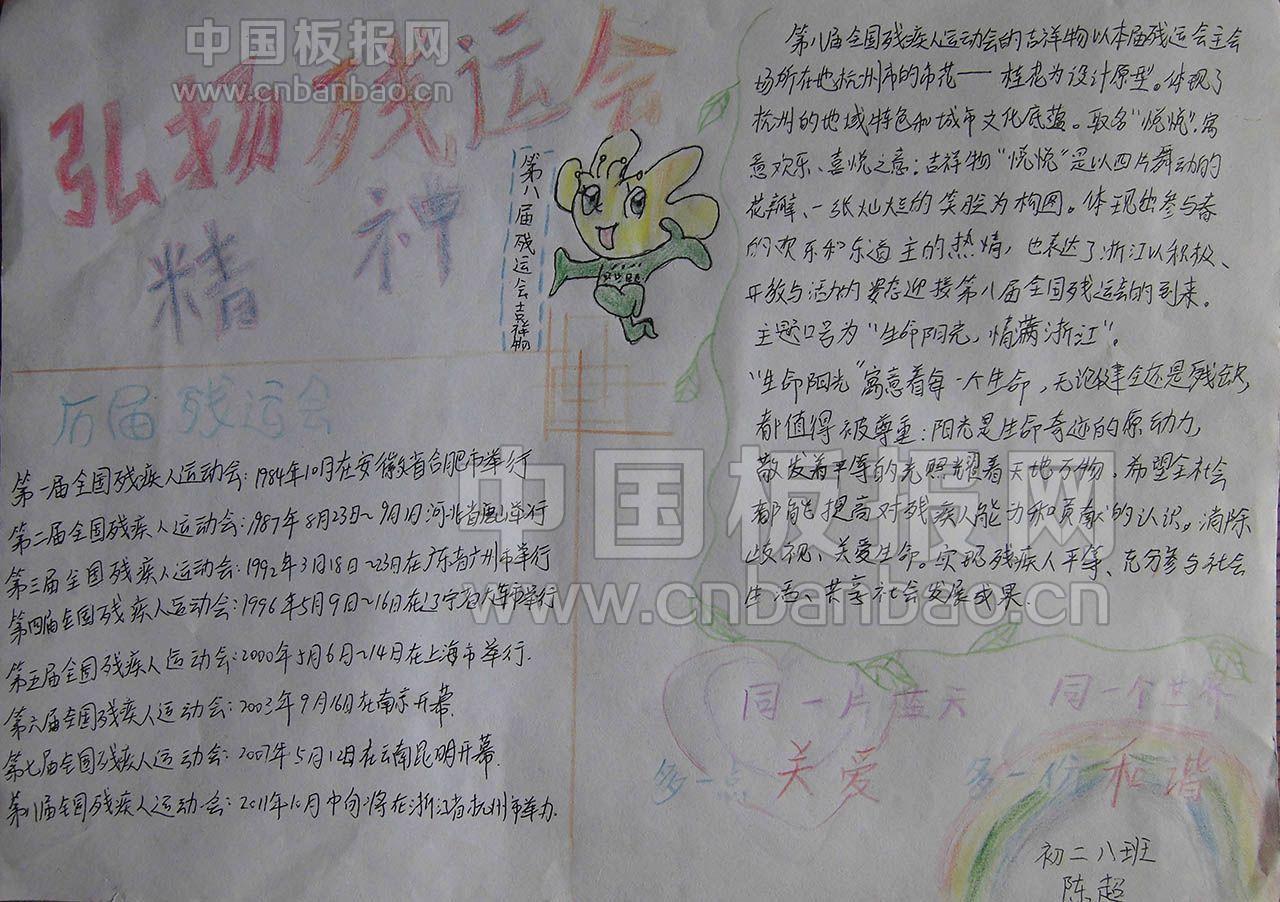 中国板报网
www.cnbanbao.cn
弘扬残运会
精神
第八届残运会吉祥物
历届残运会
第一届全国残疾人运动会:1984年10月在安徽省合肥市举行
第二届全国残疾人运动会:1987年8月23日~9月1日河北省唐山举行
第三届全国残疾人运动会:1992年3月18日~23日在广东省广州市举行
第四届全国残疾人运动会:1996年5月9日~16日在辽宁省大连市举行
第五届全国残疾人运动会:2000年5月6日~14日在上海市举行.
第六届全国残疾人运动会:2003年9月16日在南京开幕.
第七届全国残疾人运动会:2007年5月12日在云南昆明开幕.
第八届全国残疾人运动会:2011年10月中旬将在浙江省杭州市举办.
第八届全国残疾人运动会的吉祥物以本届残运会主会
场所在地杭州市的市花——桂花为设计原型。体现了
杭州的地域特色和城市文化底蕴。取名“悦悦”,寓
意欢乐、喜悦之意;吉祥物“悦悦”是以四片舞动的
花瓣、一张灿烂的笑脸为构图。体现出参与者
的欢乐和东道主的热情,也表达了浙江以积极、
开放与活力的姿态迎接第八届全国残运会的到来。
主题口号为“生命阳光,情满浙江”。
“生命阳光”寓意着每一个生命,无论健全还是残缺,
都值得被尊重:阳光是生命奇迹的原动力,
散发着平等的光照耀着天地万物。希望全社会
都能提高对残疾人能力和贡献的认识。消除
歧视、关爱生命。实现残疾人平等、充分参与社会
生活、共享社会发展成果.
中国板报网
www.cnbanbao.cn
同一片蓝天 同一个世界
多一点关爱 多一份和谐
初二八班
陈超